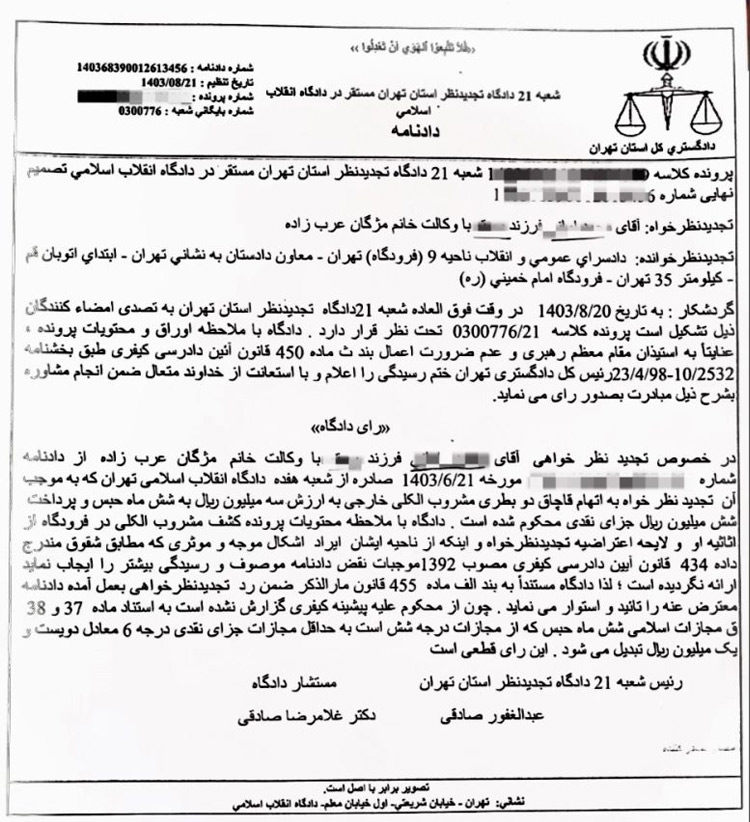 «فَلا تَتَّبِعوُا الْهَوَي اَنْ تَعْدِلُوا»
شماره دادنامه : 140368390012613456
تاریخ تنظیم : 1403/08/21
شماره پرونده :
شماره بایگانی شعبه : 0300776
شعبه 21 دادگاه تجدیدنظر استان تهران مستقر در دادگاه انقلاب
اسلامي
دادنامه
دادگستري کل استان تهران
پرونده کلاسه شعبه 21 دادگاه تجدیدنظر استان تهران مستقر در دادگاه انقلاب اسلامي تصمیم
نهایی شماره
تجدیدنظرخواه: آقای فرزند با وکالت خانم مژگان عرب زاده
تجدیدنظرخوانده: دادسراي عمومي و انقلاب ناحیه 9 (فرودگاه) تهران - معاون دادستان به نشانی تهران - ابتداي اتوبان قم
- کیلومتر 35 تهران - فرودگاه امام خمیني (ره)
گردشکار : به تاریخ 1403/8/20 در وقت فوق العاده شعبه 21دادگاه تجدیدنظر استان تهران به تصدی امضاء کنندگان
ذیل تشکیل است پرونده کلاسه 0300776/21 تحت نظر قرار دارد . دادگاه با ملاحظه اوراق و محتویات پرونده ،
عنایتاً به استیذان مقام معظم رهبری و عدم ضرورت اعمال بند ث ماده 450 قانون آئین دادرسی کیفری طبق بخشنامه
23/4/98-10/2532رئیس کل دادگستری تهران ختم رسیدگی را اعلام و با استعانت از خداوند متعال ضمن انجام مشاوره
بشرح ذیل مبادرت بصدور رای می نماید.
«رای دادگاه»
در خصوص تجدید نظر خواهی آقای فرزند با وکالت خانم مژگان عرب زاده از دادنامه
شماره مورخه 1403/6/21 صادره از شعبه هفده دادگاه انقلاب اسلامی تهران که به موجب
آن تجدید نظر خواه به اتهام قاچاق دو بطری مشروب الکلی خارجی به ارزش سه میلیون ریال به شش ماه حبس و پرداخت
شش میلیون ریال جزای نقدی محکوم شده است . دادگاه با ملاحظه محتویات پرونده کشف مشروب الکلی در فرودگاه از
اثاثیه او و لایحه اعتراضیه تجدیدنظرخواه و اینکه از ناحیه ایشان ایراد اشکال موجه و موثری که مطابق شقوق مندرج
داده 434 قانون آیین دادرسی کیفری مصوب 1392موجبات نقض دادنامه موصوف و رسیدگی بیشتر را ایجاب نماید
ارائه نگردیده است ؛ لذا دادگاه مستنداً به بند الف ماده 455 قانون مارالذکر ضمن رد تجدیدنظرخواهی بعمل آمده دادنامه
معترض عنه را تائید و استوار می نماید . چون از محکوم علیه پیشینه کیفری گزارش نشده است به استناد ماده 37 و 38
ق مجازات اسلامی شش ماه حبس که از مجازات درجه شش است به حداقل مجازات جزای نقدی درجه 6 معادل دویست و
یک میلیون ریال تبدیل می شود . این رای قطعی است
رئیس شعبه 21 دادگاه تجدیدنظر استان تهران
مستشار دادگاه
عبدالغفور صادقی
دکتر غلامرضا صادقی
تصویر برابر با اصل است.
نشاني: تهران - خیابان شریعتي- اول خیابان معلم- دادگاه انقلاب اسلامي